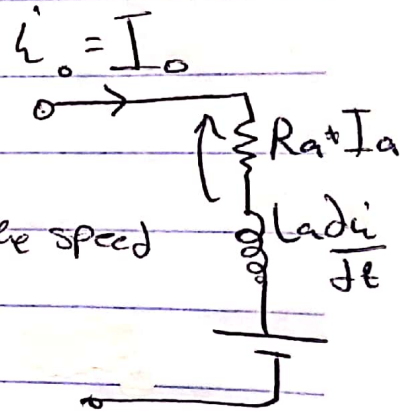 i₀ = I₀
Ra*Ia
speed
La di/dt